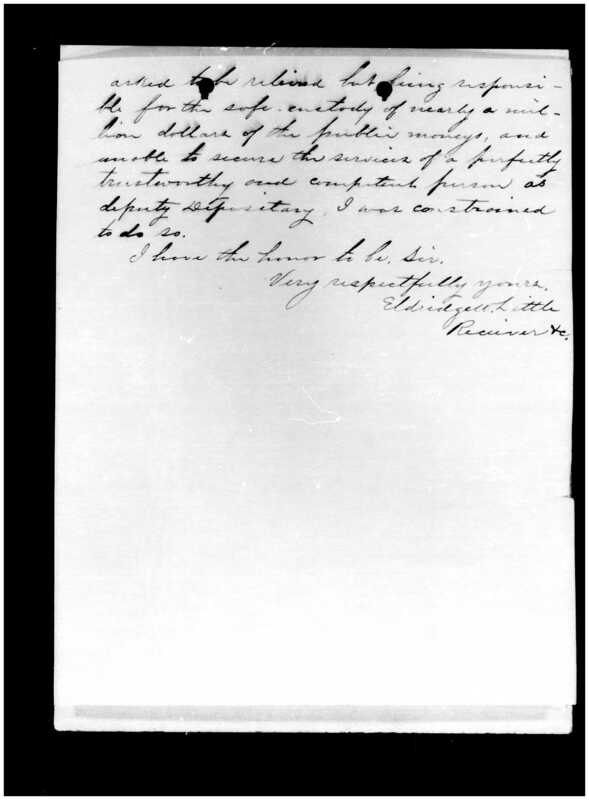 asked to be relieved but being responsi-
ble for the safe-custody of nearly a mil-
lion dollars of the public moneys, and
unable to secure the services of a perfectly
trustworthy and competent person as
deputy Depositary, I was constrained
to do so.
I have the honor to be, Sir,
Very respectfully yours,
Eldridge W. Little
Receiver &c.